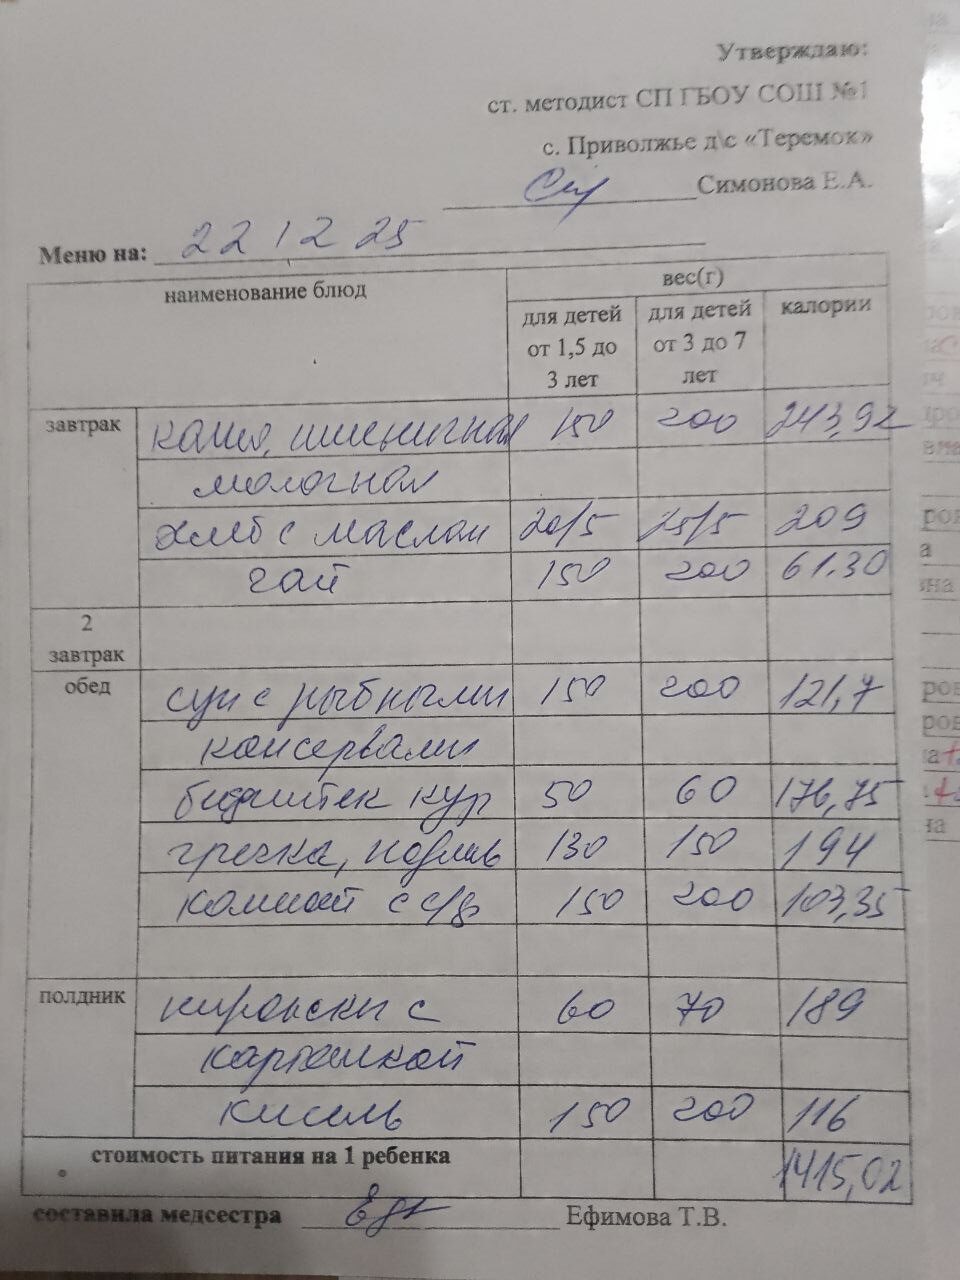 Утверждаю:
ст. методист СП ГБОУ СОШ №1
с. Приволжье д\с «Теремок»
Симонова Е.А.
Меню на: 22 12 25
наименование блюд вес(г)
для детей от 1,5 до 3 лет для детей от 3 до 7 лет калории
завтрак каша, пшеничная 150 200 243,92
молочная
хлеб с маслом 20/5 25/5 209
чай 150 200 61.30
2 завтрак
обед суп с рыбными 150 200 121,7
консервами
бифштек кур 50 60 176,75
гречка, подлив 130 150 194
компот с с/ф 150 200 103,35
полдник пирожки с 60 70 189
картошкой
кисель 150 200 116
стоимость питания на 1 ребенка 1415,02
составила медсестра Ефимова Т.В.